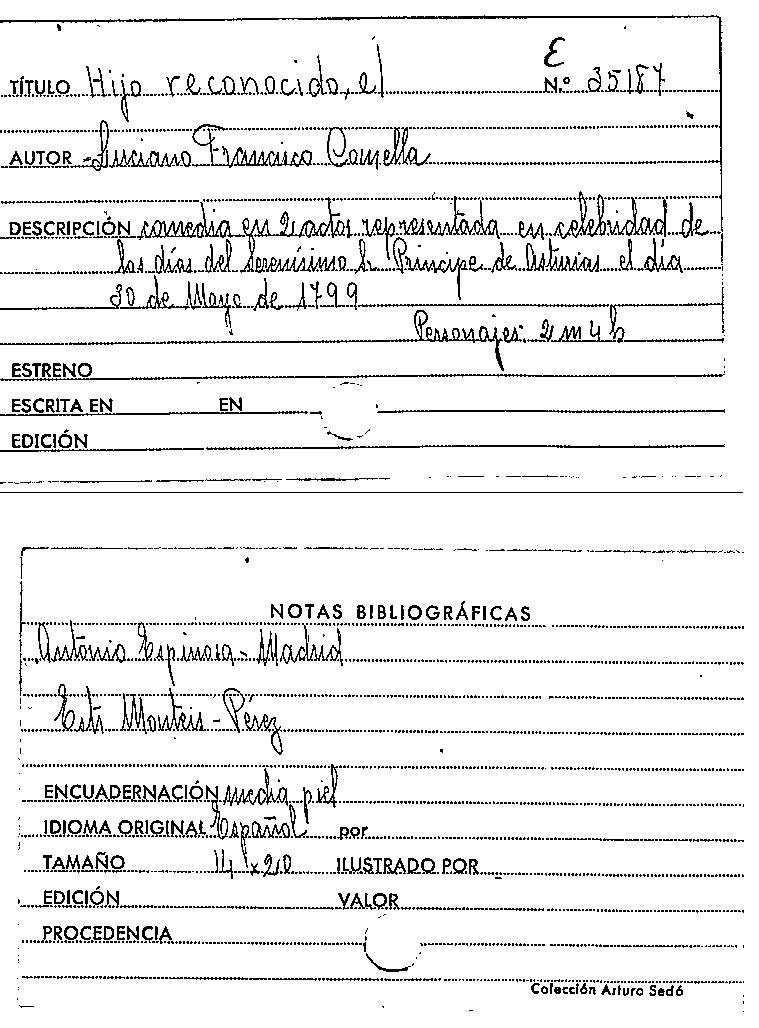 E
TÍTULO Hijo reconocido, el N.º 35187
AUTOR - Luciano Francisco Comella
DESCRIPCIÓN comedia en 2 actos representada en celebridad de
los días del Serenísimo Sr. Príncipe de Asturias el día
30 de Mayo de 1799
Personajes: 2 m 4 h
ESTRENO
ESCRITA EN EN
EDICIÓN
NOTAS BIBLIOGRÁFICAS
Antonio Espinosa - Madrid
Pérez
ENCUADERNACIÓN media piel
IDIOMA ORIGINAL Español por
TAMAÑO 14 x 20 ILUSTRADO POR
EDICIÓN VALOR
PROCEDENCIA
Colección Arturo Sedó